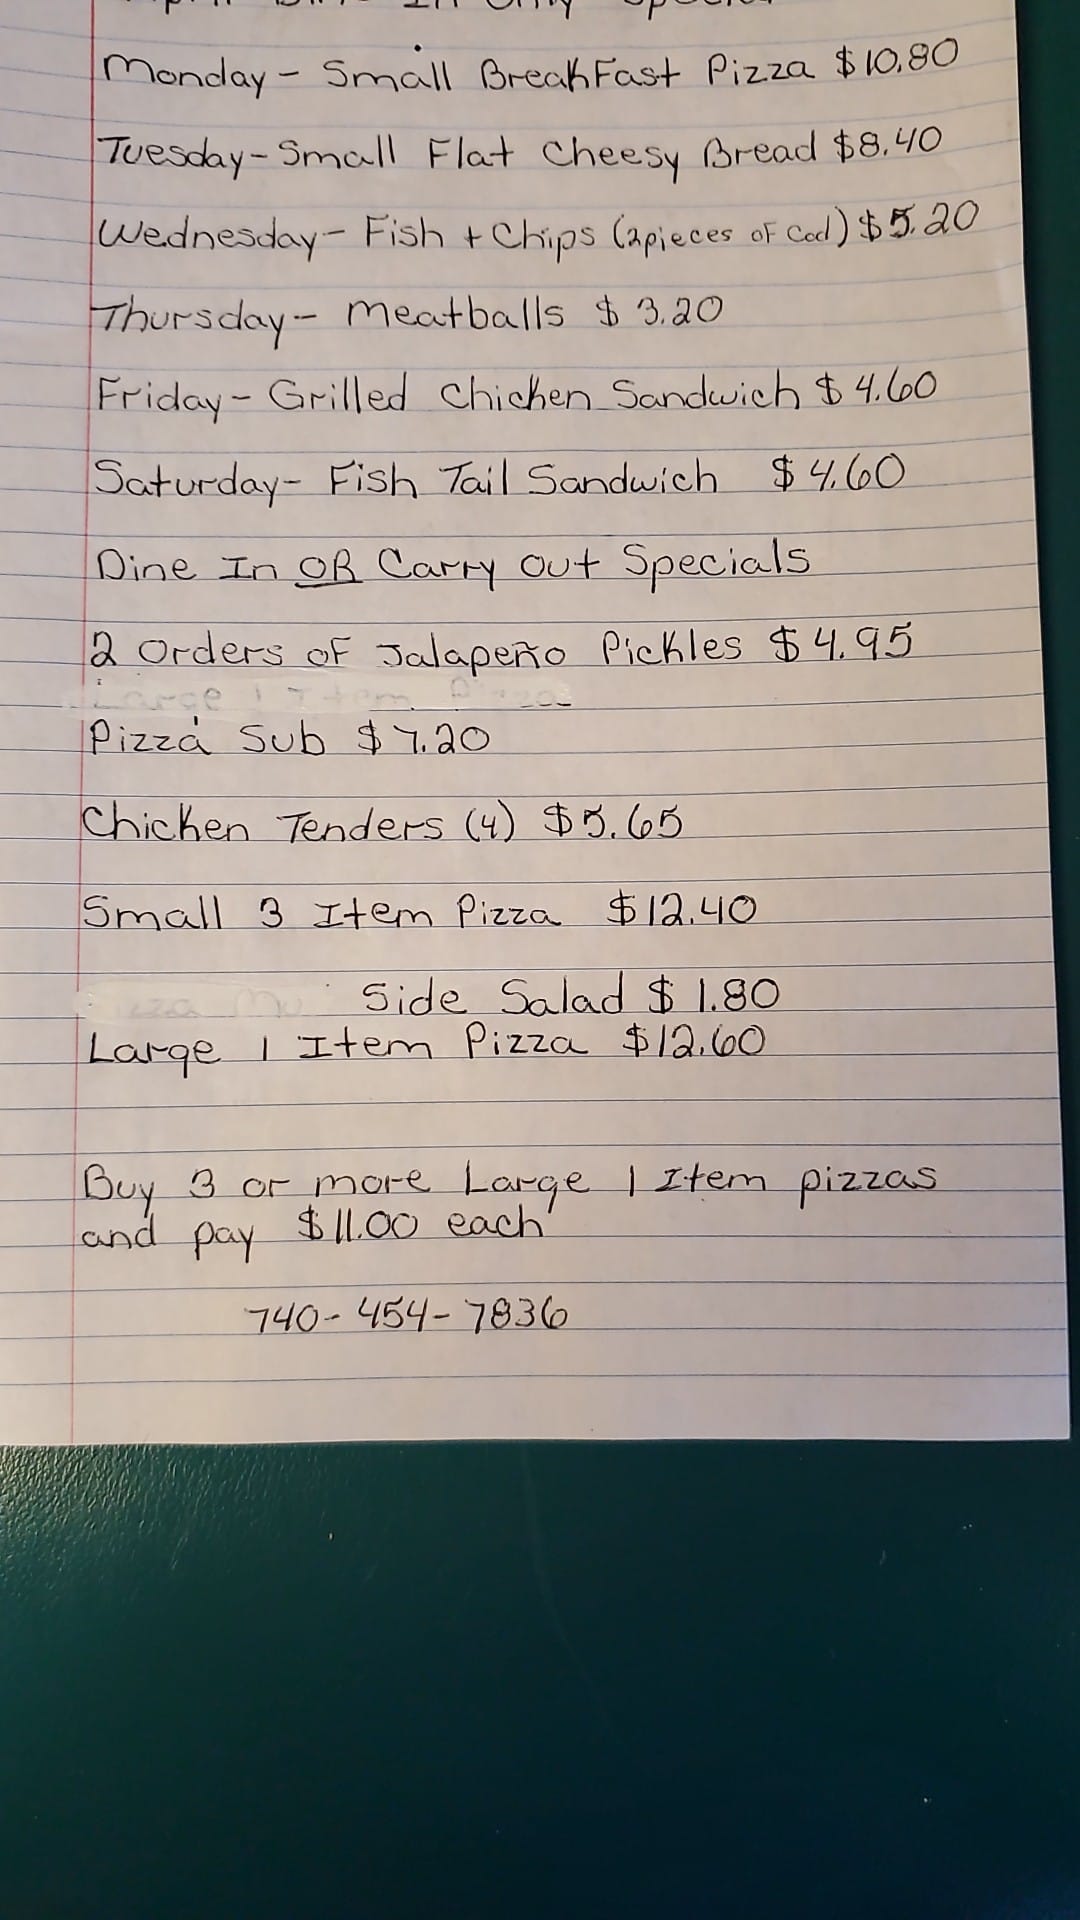 In Only Special
Monday - Small BreakFast Pizza $10.80
Tuesday - Small Flat Cheesy Bread $8.40
Wednesday - Fish + Chips (2 pieces of Cod) $5.20
Thursday - Meatballs $3.20
Friday - Grilled Chicken Sandwich $4.60
Saturday - Fish Tail Sandwich $4.60
Dine In OR Carry Out Specials
2 Orders of Jalapeño Pickles $4.95
Large 1 Item Pizza
Pizza Sub $7.20
Chicken Tenders (4) $5.65
Small 3 Item Pizza $12.40
Side Salad $1.80
Large 1 Item Pizza $12.60
Buy 3 or more Large 1 Item pizzas
and pay $11.00 each
740-454-7836